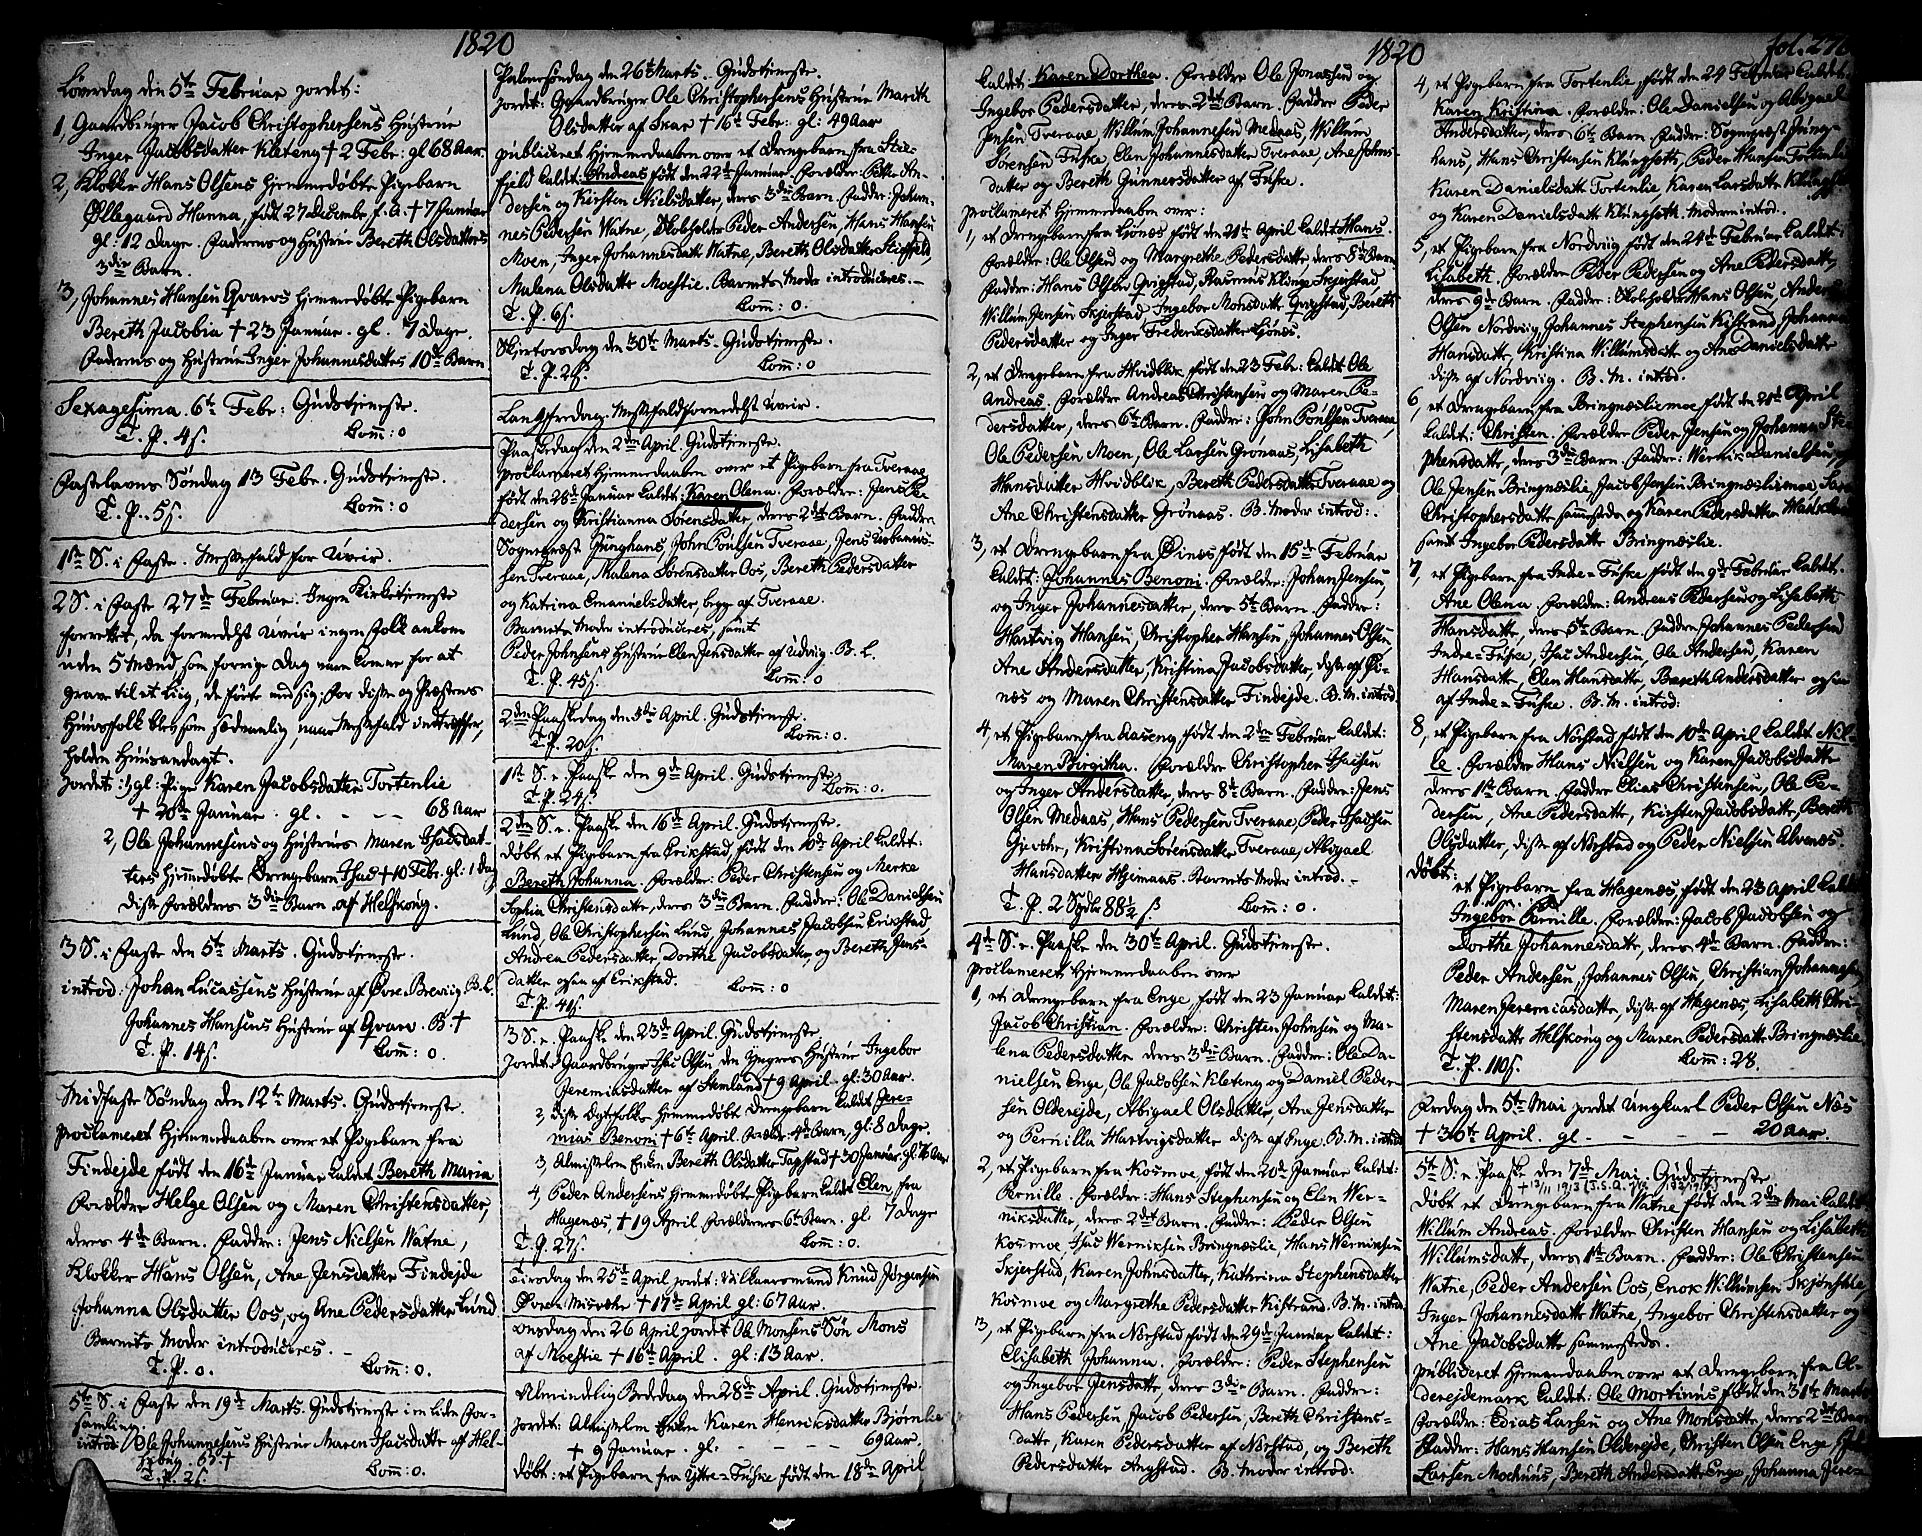 1820
Løverdag den 5te Februar jordet:
1, Gaardbruger Jacob Christophersens Hustrue
Inger Jacobsdatter Kleteng † 2 Febr: gl 68 Aar.
2, Klokker Hans Olsens hjemmedøbte Pigebarn
Øllegaard Hanna, født 27 Decembr f. A. † 7 Januar
gl: 12 Dage. Faderens og Hustrue Bereth Olsdatters
3die Barn.
3, Johannes Hansen Qvarvs hjemmedøbte Pigebarn
Bereth Jacobia † 23 Januar. gl. 7 Dage.
Faderens og Hustrue Inger Johannesdatters 10de Barn
Sexagesima. 6te Febr: Gudstjeneste.
T. P. 4 s. Com̅: 0
Fastelavns Søndag 13 Febr. Gudstjeneste.
T. P. 5 s. Com̅: 0
1ste S. i Faste. Messefald for Uveir.
2 S. i Faste 27de Februar. Ingen Kirketjeneste
forrettet, da formedelst Uveir ingen Folk ankom
uden 5 Mænd, som forrige Dag vare komne for at
grave til et Liig, de førte med sig, for disse og Præstens
Huusfolk blev som sædvanlig, naar Messefald indtreffer,
holden Huusandagt.
Jordet: 1, gl: Pige Karen Jacobsdatter Tortenlie
† 20de Januar. gl. - - - 68 Aar
2, Ole Johannesens og Hustrues Maren Isacsdat-
ters hjemmedøbte Drengebarn Isac † 10 Febr. gl: 1 Dag
disse Forældres 3die Barn af Helskong.
3 S. i Faste den 5te Marts. Gudstjeneste.
introd: Johan Lucassens Hustrue af Øvre Breviig B. L.
Johannes Hansens Hustrue af Qvarv. B. †
T. P. 14 s. Com̅: 0.
Midfaste Søndag den 12te Marts. Gudstjeneste.
proclameret Hjemmedaaben over et Pigebarn fra
Findejde født den 16de Januar kaldet Bereth Maria
Forældre Helge Olsen og Maren Christensdatter,
deres 4de Barn. Faddre: Jens Nielsen Watne,
Klokker Hans Olsen, Ane Jensdatter Findejde
Johanna Olsdatter Oos, og Ane Pedersdatter Lund
Barnets Moder introduceres. -
T. P. 0. Com̅: 0.
5te S. i Faste den 19de Marts. Gudstjeneste i en liden For-
samling
introd: Ole Johannesens Hustrue Maren Isacsdatter af Hel-
skong. B. †
T. P. 2 s. Com̅: 0.
Palmesøndag den 26te Marts. Gudstjeneste.
jordet: Gaardbruger Ole Christophersens Hustrue Mareth
Olsdatter af Skar † 16de Febr: gl: 49 Aar
publiceret Hjemmedaaben over et Drengebarn fra Stei-
fjeld kaldet Andreas født den 22de Januar. Forældre: Peder An-
dersen og Kirsten Nielsdatter, deres 3die Barn. Faddre: Johan-
nes Pedersen Watne, Skoleholder Peder Andersen, Hans Hansen
Moen, Inger Johannesdatter Watne, Bereth Olsdatter Steifjeld,
Malena Olsdatter Moestie. Barnets Moder introduceres. -
T. P. 6 s. Com̅: 0.
Skjertorsdag den 30te Marts. Gudstjeneste.
T. P. 2 s. Com̅: 0
Langfredag Messefald formedelst Uveir.
Paaskedag den 2den April Gudstjeneste.
proclameret Hjemmedaaben over et Pigebarn fra Tveraae
født den 28de Januar kaldet: Karen Olena. Forældre: Jens Pe-
dersen og Kristianna Sørensdatter, deres 2det Barn. Faddre
Sognepræst Junghans, John Povlsen Tveraae, Jens Urbanus-
sen Tveraae, Malena Sørensdatter Oos, Bereth Pedersdatter
og Katrina Emanuelsdatter, begge af Tveraae.
Barnets Moder introduceres, samt
Peder Johnsens Hustrue Elen Jensdatter af Udvig. B. L.
T. P. 45 s. Com̅: 0
2den Paaskedag den 3die April. Gudstjeneste.
T. P. 20 s. Com̅: 0.
1ste S. e. Paaske den 9de April. Gudstjeneste.
T. P. 24 s. Com̅: 0.
2den S. e. Paaske den 16de April. Gudstjeneste.
døbt et Pigebarn fra Erikstad, født den 10de April kaldet:
Bereth Johanna. Forældre: Peder Christensen og Merke
Sophia Christensdatter, deres 3die Barn. Faddre: Ole Danielsen
Lund, Ole Christophersen Lund, Johannes Jacobsen Erikstad,
Andrea Pedersdatter, Dorthe Jacobsdatter, og Bereth Jens-
datter ogsaa af Erikstad.
T. P. 41 s. Com̅: 0
3 S. e. Paaske den 23de April. Gudstjeneste
jordet: Gaardbruger Isac Olsen den Yngres Hustrue Ingebor
Jeremiasdatter af Stemland † 9 April. gl: 30 Aar.
2, disse Egtefolks hjemmedøbt Drengebarn kaldet Jere-
mias Benoni † 6te April. Forældr. 4de Barn, gl: 8 Dage.
3, Almislem Enken Bereth Olsdatter Tapstad † 30 Januar gl: 76 Aar
4, Peder Andersens hjemmedøbte Pigebarn kaldt Elen, fra
Hagenæs, † 19 April. Forældrenes 6te Barn. gl 7 Dage
T. P. 27 s. Com̅: 0.
Tirsdag den 25de April jordet: Vilkaarsmand Knud Jørgensen
Øvren Misvær † 17de April gl: 67 Aar.
Onsdag den 26 April jordet Ole Monsens Søn Mons
af Moestie † 16de April. gl: 13 Aar.
Almindelig Bededag den 28de April. Gudstjeneste.
jordet: Almislem Enken Karen Henriksdatter Bjørnlie
† 9 Januar. gl: - - - 69 Aar.
døbt: et Pigebarn fra Yttre-Fuske født den 18de April
1820 fol. 276
kaldet: Karen Dorthea. Forældre Ole Jonassen og
Ingebor Pedersdatter, deres 2det Barn. Faddre Peder
Jensen Tveraae, Willum Johannesen Medaas, Willum
Sørensen Fuske, Elen Johannesdatter Tveraae, Ane Johns-
datter og Bereth Gunnersdatter af Fuske.
proclameret Hjemmedaaben over:
1, et Drengebarn fra Ljønes født den 21de April kaldet Hans.
Forældre: Ole Olsen og Margrethe Pedersdatter, deres 8de Barn
Faddre: Hans Olsen Qvigstad, Rasmus Klinge Skjerstad,
Willum Jensen Skjerstad, Ingebor Monsdatt. Qvigstad, Bereth
Pedersdatter og Inger Frederiksdatter Ljønes.
2, et Drengebarn fra Hvidblik, født den 23 Febr: kaldet Ole
Andreas. Forældre Andreas Christensen og Maren Pe-
dersdatter, deres 6te Barn. Faddre: John Povlsen Tveraae,
Ole Pedersen Moen, Ole Larsen Grønaas, Lisabeth
Hansdatter Hvidblik, Bereth Pedersdatter Tveraae og
Ane Christensdatter Grønaas. B. Moder introd:.
3, et Drengebarn fra Øines født den 15de Februar
kaldet: Johannes Benoni. Forældre: Johan Jensen,
og Inger Johannesdatter, deres 5te Barn. Faddre:
Hartvig Hansen, Christopher Hansen, Johannes Olsen,
Ane Andersdatter, Kristina Jacobsdatter, disse af Øi-
næs og Maren Christensdatter Findejde. B. M. introd.
4, et Pigebarn fra Aaseng født den 2den Februar kaldet:
Maren Birgitha. Forældre Christopher Isacsen
og Inger Andersdatter, deres 8de Barn. Faddre: Jens
Olsen Medaas, Hans Pedersen Tveraae, Peder Isacsen
Gjerthe, Kristina Sørensdatter Tveraae, Abigael
Hansdatter Heimaas. Barnets Moder introd. -
T. P. 2 Spdlr 88½ s. Com̅: 0.
4de S. e. Paaske den 30te April. Gudstjeneste.
proclameret Hjemmedaaben over
1, et Drengebarn fra Enge, født den 23 Januar kaldet:
Jacob Christian. Forældre: Christen Johnsen og Ma-
lena Pedersdatter deres 3die Barn. Faddre: Ole Da-
nielsen Enge, Ole Jacobsen Kleteng og Daniel Peder-
sen Olderejde, Abigael Olsdatter, Ane Jensdatter
og Pernilla Hartvigsdatter disse af Enge. B. M. introd
2, et Pigebarn fra Kosmoe, født den 20de Januar kaldet:
Pernille. Forældre: Hans Stephensen og Elen Wer-
niksdatter, deres 2det Barn. Faddre: Peder Olsen
Kosmoe Isac Werniksen Bringnæslie, Hans Werniksen
Skjerstad, Karen Johnsdatter, Kathrina Stephensdatter
Kosmoe og Margrethe Pedersdatter Kistrand. B. M. introd
3, et Pigebarn fra Nørstad, født den 29de Januar kaldet:
Elisabeth Johanna. Forældre: Peder Stephensen
og Ingebor Jensdatter, deres 3die Barn. Faddre:
Hans Pedersen, Jacob Pedersen, Bereth Christens-
datter, Karen Pedersdatter af Nørstad, og Bereth
Pedersdatter Angstad. B. Moder introd:
4, et Pigebarn fra Tortenlie, født den 24 Februar kaldet.
Karen Kristina. Forældre: Ole Danielsen og Abigael
Andersdatter, deres 6te Barn. Faddre: Sognepræst Jung-
hans, Hans Christensen Klungseth, Peder Hansen Tortenli
Karen Danielsdatt. Tortenlie, Karen Larsdatter
og Karen Danielsdatt. Klungseth. Moderen introd.
5, et Pigebarn fra Nordviig født den 24de Februar kaldet:
Lisabeth. Forældre Peder Pedersen og Ane Pedersdatter,
deres 9de Barn. Faddre: Skoleholder Hans Olsen, Anders
Olsen Nordviig, Johannes Stephensen Kistrand, Johanna
Hansdatter, Kristina Willumsdatter og Ane Danielsdatter
disse af Nordviig. B. M. introd.
6, et Drengebarn fra Bringnæsliemoe født den 21de April
kaldet: Christen. Forældre Peder Jensen og Johanna Ste-
phensdatter, deres 3die Barn. Faddre: Wernik Danielsen,
Ole Jensen Bringnæslie, Jacob Jensen Bringnæsliemoe,
Christophersdatter sammesteds og Karen Pedersdatter
samt Ingebor Pedersdatter Bringnæslie.
7, et Pigebarn fra Indre-Fuske født den 9de Februar kaldet.
Ane Olena. Forældre: Andreas Pedersen og Lisabeth
Hansdatter, deres 5te Barn. Faddre Johannes Pedersen
Indre-Fuske, Isac Andersen, Ole Andersen, Karen
Hansdatter, Elen Hansdatter, Bereth Andersdatter ogsaa
af Indre-Fuske. B. M. introd:
8, et Pigebarn fra Nørstad født den 10de April kaldet Nil-
le. Forældre Hans Nielsen og Karen Jacobsdatter
deres 1ste Barn. Faddre Elias Christensen, Ole Pe-
dersen, Ane Pedersdatter, Kirsten Jacobsdatter, Bereth
Olsdatter, disse af Nørstad og Peder Nielsen Elvenes.
døbt:
et Pigebarn fra Hagenæs, født den 23 April kaldet
Ingebor Pernille. Forældre: Jacob Jacobsen og
Dorthe Johannesdatter, deres 4de Barn. Faddre:
Peder Andersen, Johannes Olsen, Christian Johannesen,
Maren Jeremiasdatter, disse af Hagenæs, Lisabeth Chri-
stensdatter Helskong og Maren Pedersdatter Bringnæslie.
T. P. 110 s. Com̅: 28.
Fredag den 5te Mai jordet Ungkarl Peder Olsen Næs
† 30te April. gl - - - 20 Aar.
5te S. e. Paaske den 7de Mai Gudstjeneste.
døbt et Drengebarn fra Watne født den 2den Mai kaldet
Willum Andreas. Forældre Christen Hansen og Lisabeth
Willumsdatter, deres 1ste Barn. Faddre: Ole Christensen
Watne, Peder Andersen Oos, Enok Willumsen Skjønstue,
Inger Johannesdatt. Watne, Ingebor Christensdatter og
Ane Jacobsdatter sammesteds.
publiceret Hjemmedaaben over et Drengebarn fra Ol-
derejdemark kaldet: Ole Mortinus født den 31te Marts
Forældre: Edias Larsen og Ane Monsdatter, deres 2det Barn
Faddre: Hans Hansen Olderejde, Christen Olsen Enge,
Larsen Mochuus, Bereth Andersdatter Enge, Johanna Jere-